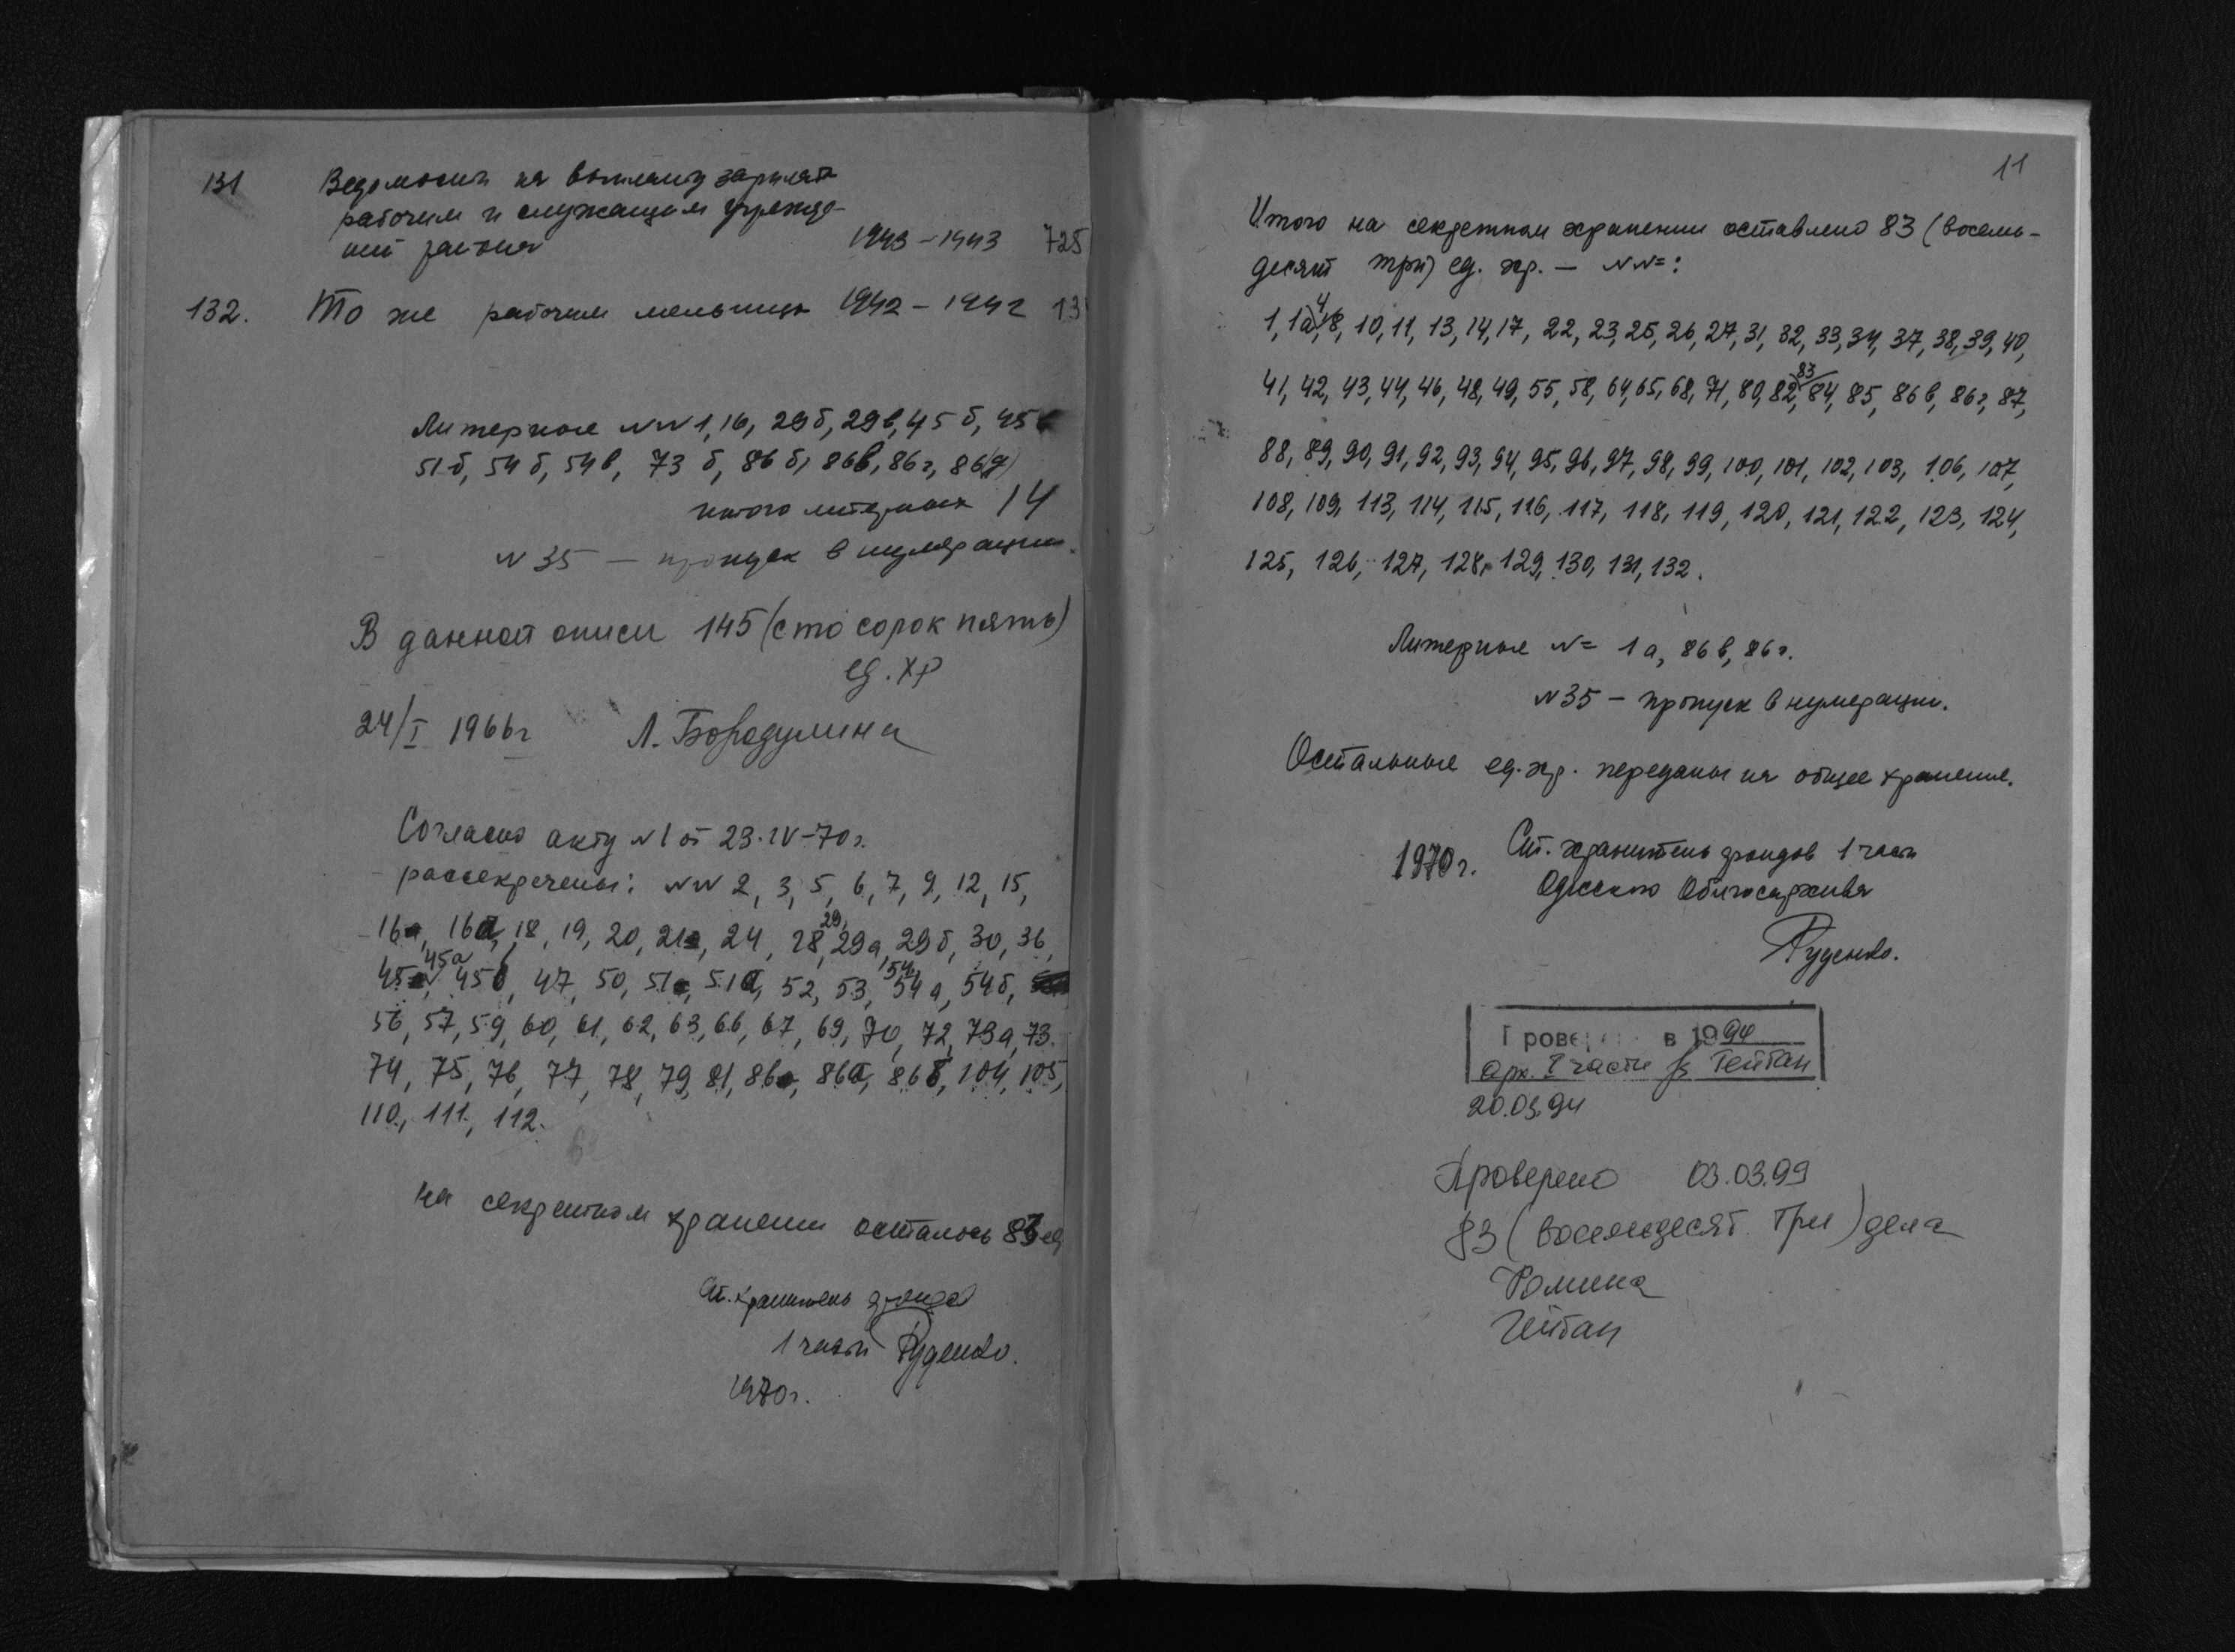 131 Ведомости на выплату зарплат
рабочим и служащим учрежде-
ний района 1943-1943 725
132. То же рабочим мельницы 1942-1942 13
Литерные NN 1, 16, 29б, 29в, 45б, 45в
51б, 54б, 54в, 73б, 86б, 86в, 86г, 86(д)
итого литерных 14
N 35 — пропуск в нумерации.
В данной описи 145 (сто сорок пять)
ед. хр
24/I 1966г Л. Бородулина
Согласно акту N1 от 23.IV-70г.
рассекречены: NN 2, 3, 5, 6, 7, 9, 12, 15,
16, 16а, 18, 19, 20, 21, 24, 28, 29, 29а, 29б, 30, 36,
45, 45а, 45б, 47, 50, 51, 51а, 52, 53, 54, 54а, 54б,
56, 57, 59, 60, 61, 62, 63, 66, 67, 69, 70, 72, 73а, 73.
74, 75, 76, 77, 78, 79, 81, 86, 86а, 86б, 104, 105,
110., 111., 112.
на секретном хранении осталось 83 ед
Ст. хранитель фонда
1 части Руденко.
1970г.
11
Итого на секретном хранении оставлено 83 (восемь-
десят три) ед. хр. — NN=:
1, 1а, 4, 8, 10, 11, 13, 14, 17, 22, 23, 25, 26, 27, 31, 32, 33, 34, 37, 38, 39, 40,
41, 42, 43, 44, 46, 48, 49, 55, 58, 64, 65, 68, 71, 80, 82, 83, 84, 85, 86в, 86г, 87,
88, 89, 90, 91, 92, 93, 94, 95, 96, 97, 98, 99, 100, 101, 102, 103, 106, 107,
108, 109, 113, 114, 115, 116, 117, 118, 119, 120, 121, 122, 123, 124,
125, 126, 127, 128, 129, 130, 131, 132.
Литерные N= 1а, 86в, 86г.
N 35 — пропуск в нумерации.
Остальные ед. хр. переданы на общее хранение.
1970г. Ст. хранитель фондов 1 части
Одесского Облгосархива
Руденко.
Провер в 1994
арх. I части Гейтан
20.03.94
Проверено 03.03.99
83 (восемьдесят три) дела
Фомина
Гейтан